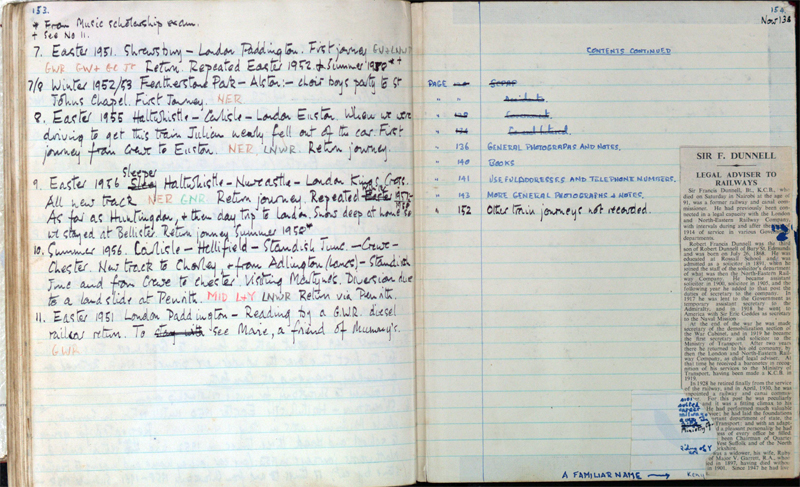 153.
+ From Music scholarship exam.
+ See No 11.
7. Easter 1951. Shrewsbury – London Paddington. First journey GW+LNWR
GWR GW+GC JT Return. Repeated Easter 1952 & Summer 1950*+
7/8 Winter 1952/53 Featherstone Park – Alston:– choir boys party to St
Johns Chapel. First Journey. NER
8. Easter 1955 Haltwhistle – Carlisle – London Euston. When we were
driving to get this train Julian nearly fell out of the car. First
journey from Crewe to Euston. NER. LNWR. Return journey.
sleeper
9. Easter 1956 Haltwhistle – Newcastle – London Kings Cross.
All new track NER GNR. Return journey. Repeated Easter 1957
As far as Huntingdon, + then day trip to London. Snow deep at home so
we stayed at Bellister. Return journey Summer 1956*
10. Summer 1956. Carlisle – Hellifield – Standish Junc. – Crewe –
Chester. New track to Chorley, + from Adlington (Lancs) – Standish
Junc and from Crewe to Chester. Visiting Martynes. Diversion due
to a landslide at Penrith. MID L+Y LNWR Return via Penrith.
11. Easter 1951 London Paddington – Reading by a G.W.R. diesel
railcar return. To stay with see Marie, a friend of Mummy's.
GWR
154.
Nov 138
CONTENTS CONTINUED
PAGE
" " 
" "
" "
" 136 GENERAL PHOTOGRAPHS AND NOTES.
" 140 BOOKS
" 141 USEFUL ADDRESSES AND TELEPHONE NUMBERS.
" 143 MORE GENERAL PHOTOGRAPHS & NOTES.
" 152 Other train journeys not recorded.
SIR F. DUNNELL
LEGAL ADVISER TO
RAILWAYS
Sir Francis Dunnell, Bt., K.C.B., who
died on Saturday in Norfolk at the age of
91, was a former railway and canal com-
missioner. He had previously been con-
nected in a legal capacity with the London
and North-Eastern Railway Company,
with intervals during and after the
1914 of service in various Government
departments.
Robert Francis Dunnell was the third
son of Robert Dunnell of Bury St. Edmunds
and was born on July 26, 1868. He was
educated at Rossall School and was
admitted as a solicitor in 1891, when he
joined the staff of the solicitor's department
of what was then the North-Eastern Rail-
way Company. He became assistant
solicitor in 1900, solicitor in 1905, and the
following year he added to that post the
duties of secretary to the company. In
1917 he was lent to the Government as
temporary assistant secretary to the
Admiralty, and in 1918 he went to
America with Sir Eric Geddes as secretary
to the Naval Mission.
At the end of the war he was made
secretary of the demobilization section of
the War Cabinet, and in 1919 he became
the first secretary and solicitor to the
Ministry of Transport. After two years
there he returned to his old company, by
then the London and North-Eastern Rail-
way Company, as chief legal adviser. At
that time he received a baronetcy in recog-
nition of his services to the Ministry of
Transport, having been made a K.C.B. in
1919.
In 1928 he retired finally from the service
of the railway, and in April, 1930, he was
appointed a railway and canal commis-
For this post he was peculiarly
and it was a fitting climax to his
He had performed much valuable
he had laid the foundations
department of state, the
Transport; and with an adapt-
a pleasant personality he had
of every office he filled
been Chairman of Quarter
East Suffolk and of the North
Yorkshire.
a widower, his wife, Ruby
of Major V. Garrett, R.A., whom
in 1897, having died within
in 1946. Since 1947 he had
A FAMILIAR NAME →